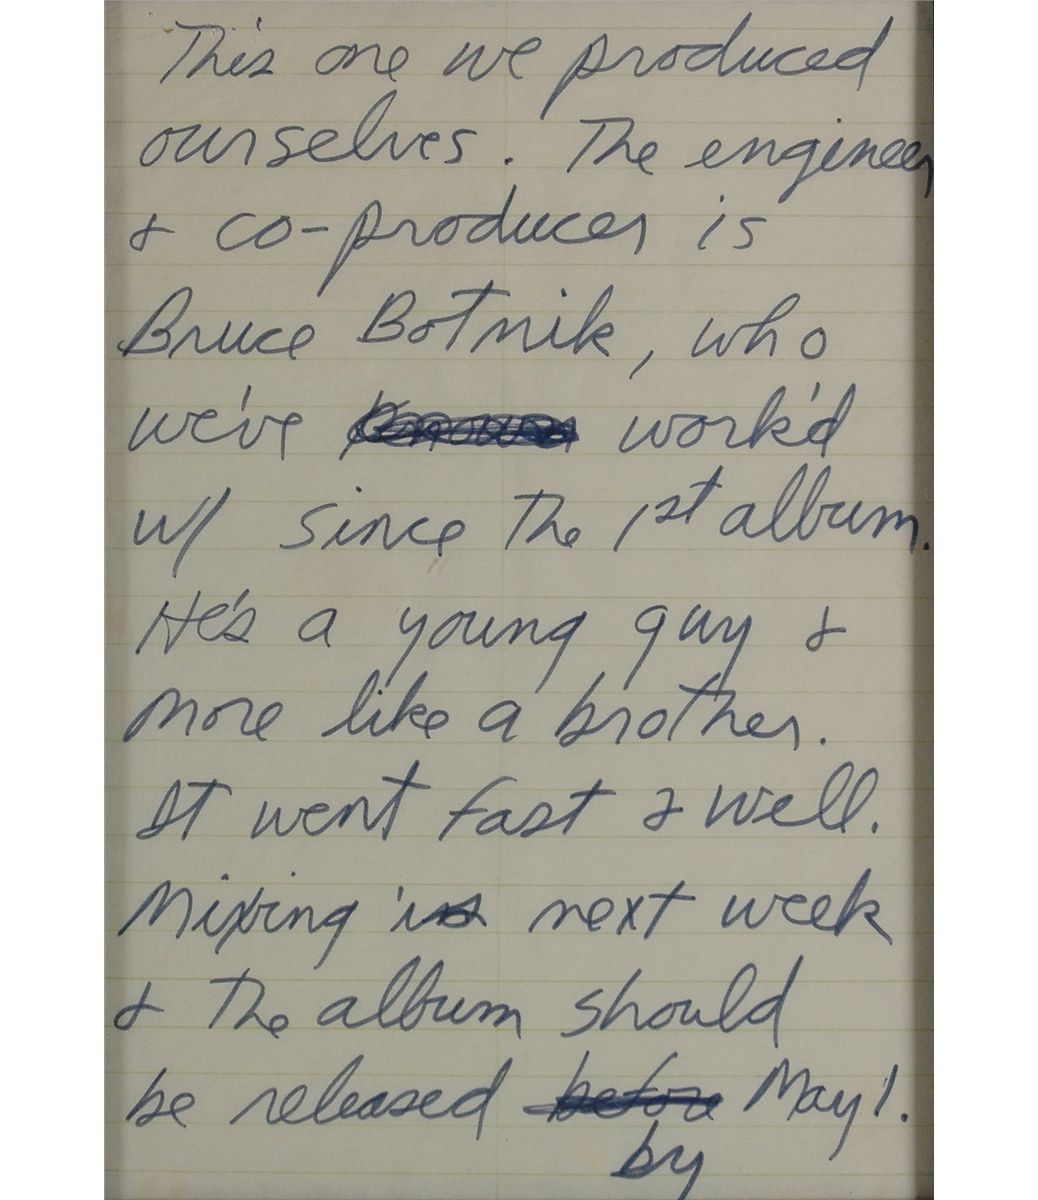 This one we produced
ourselves. The engineer
& co-producer is
Bruce Botnik, who
we've work'd
w/ since the 1st album.
He's a young guy &
more like a brother.
It went fast & well.
Mixing is next week
& the album should
be released before May 1.
by